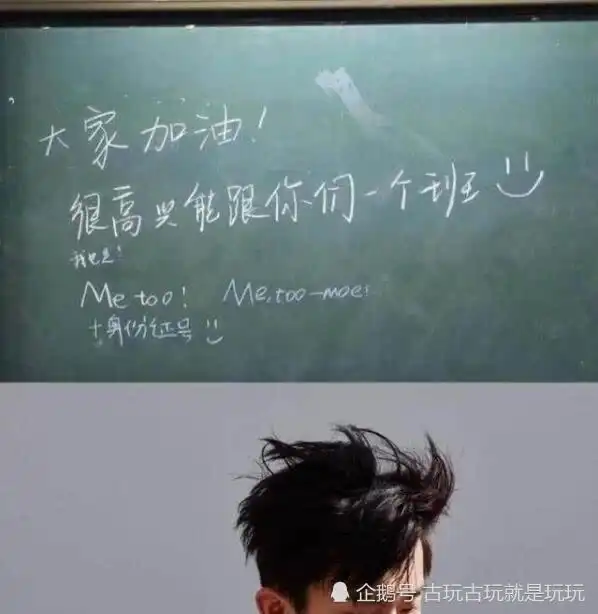 大家加油!
很高兴能跟你们一个班
我也是!
Me too! Me, too-moe!
+身份证号
企鹅号 古玩古玩就是玩玩